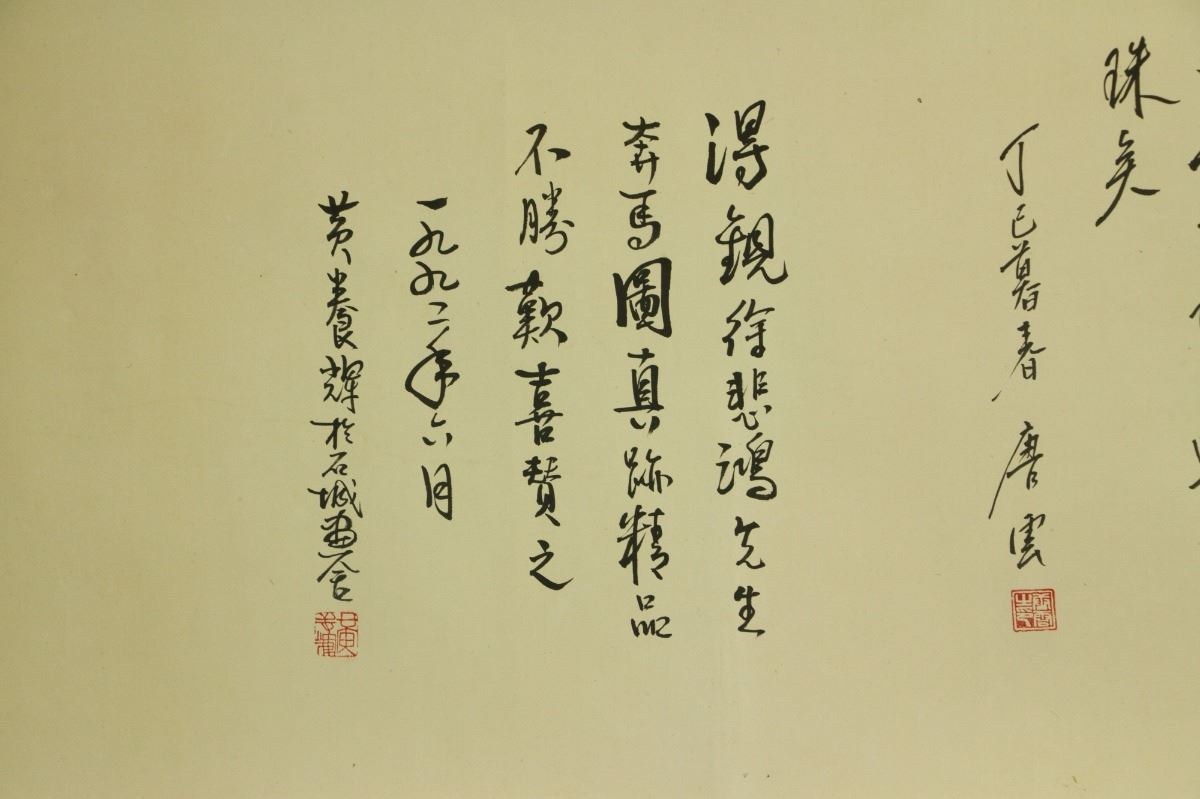 珠矣
丁巳暮春 唐雲
得觀徐悲鴻先生
奔馬圖真跡精品
不勝歡喜贊之
一九九二年六月
黄養輝於石城畫舍